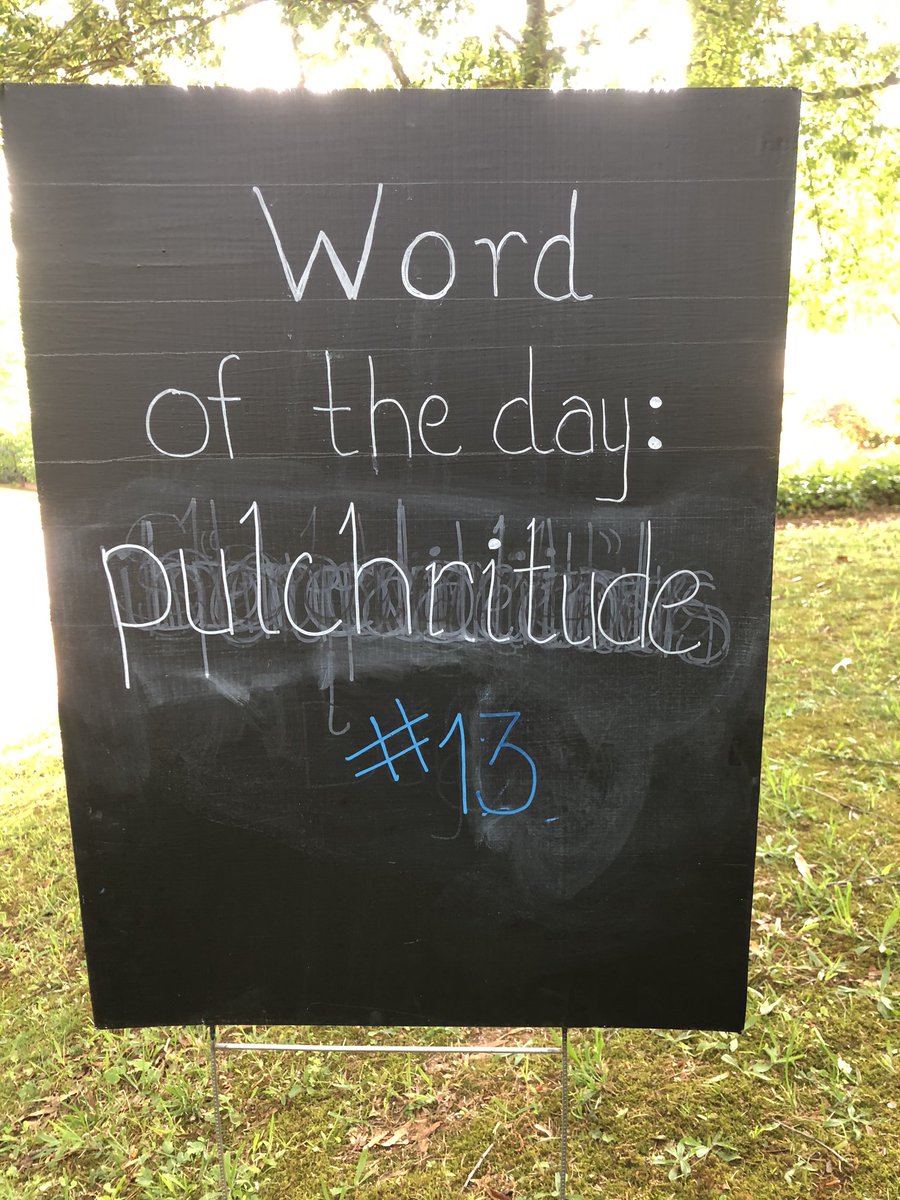 Word
of the day:
pulchritude
#13